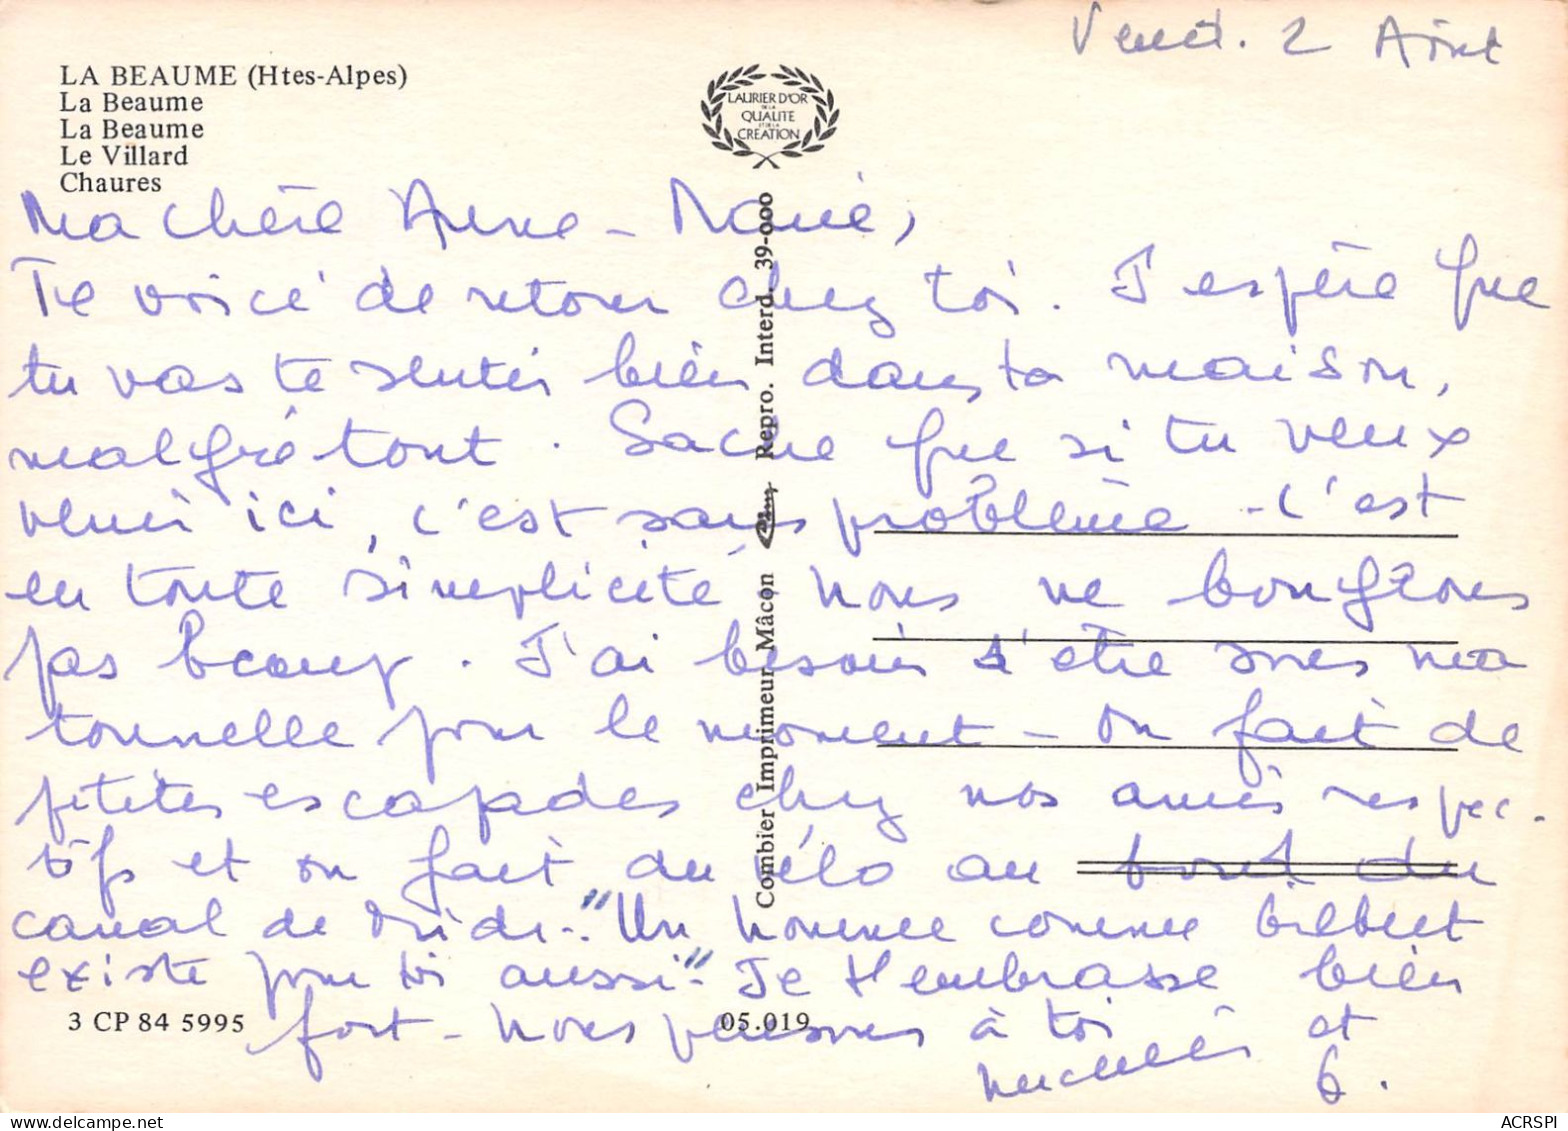 Vend. 2 Août
LA BEAUME (Htes-Alpes)
La Beaume
La Beaume
Le Villard
Chaures
LAURIER D'OR
DE LA
QUALITE
ET DE LA
CREATION
Ma chère Anne-Marie,
Te voici de retour chez toi. J'espère que
tu vas te sentir bien dans ta maison,
malgré tout. Sache que si tu veux
venir ici, c'est sans problème - C'est
en toute simplicité. Nous ne bougeons
pas beaucoup. J'ai besoin d'être sous ma
tonnelle pour le moment - On fait de
petites escapades chez nos amis respec-
tifs et on fait du vélo au bord du
canal du Midi. - "Un homme comme Gilbert
existe pour toi aussi" - Je t'embrasse bien
fort - Nous pensons à toi
et
G.
Combier Imprimeur Mâcon Repro. Interd. 39-000
3 CP 84 5995
05.019
ACRSPI